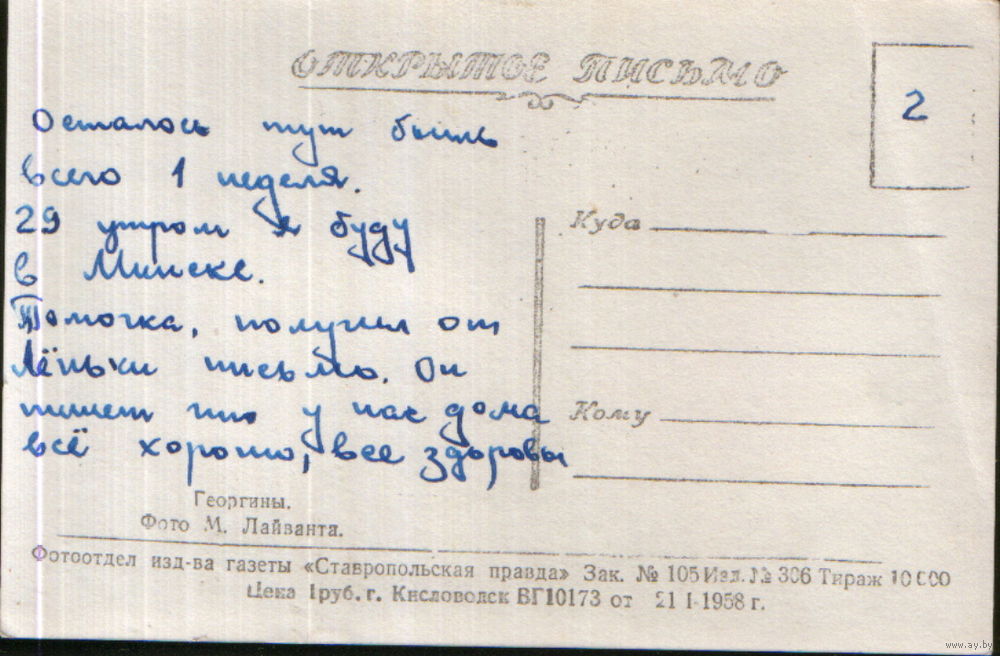 ОТКРЫТОЕ ПИСЬМО
2
Осталось тут быть
всего 1 неделя.
29 утром я буду
в Минске.
Томочка, получил от
Лёньки письмо. Он
пишет что у нас дома
всё хорошо, все здоровы
Куда
Кому
Георгины.
Фото М. Лайванта.
Фотоотдел изд-ва газеты «Ставропольская правда» Зак. № 105 Изд. № 306 Тираж 10 000
Цена 1руб. г. Кисловодск ВГ10173 от 21 I-1958 г.
www.ay.by